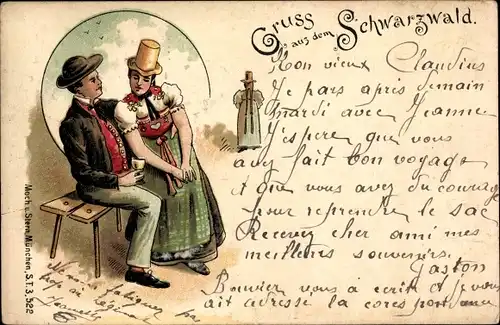 Gruss
aus dem Schwarzwald.
Mon vieux Claudius
Je pars après demain
mardi avec Jeanne.
J'espère que vous
avez fait bon voyage
et que vous avez du courage
pour reprendre le sac
Recevez cher ami mes
meilleurs souvenirs.
Gaston
Bouvier vous a écrit et je vous
ait adressé la corespondance
Ne vous fatiguez pas
trop au régiment
Jeanne
Moch u. Stern, München, S.T.3.522